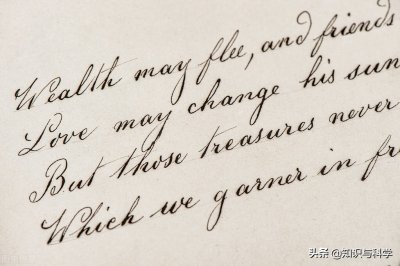 Wealth may flee, and friends
Love may change his sun
But those treasures never
Which we garner in fr
头条 @知识与科学